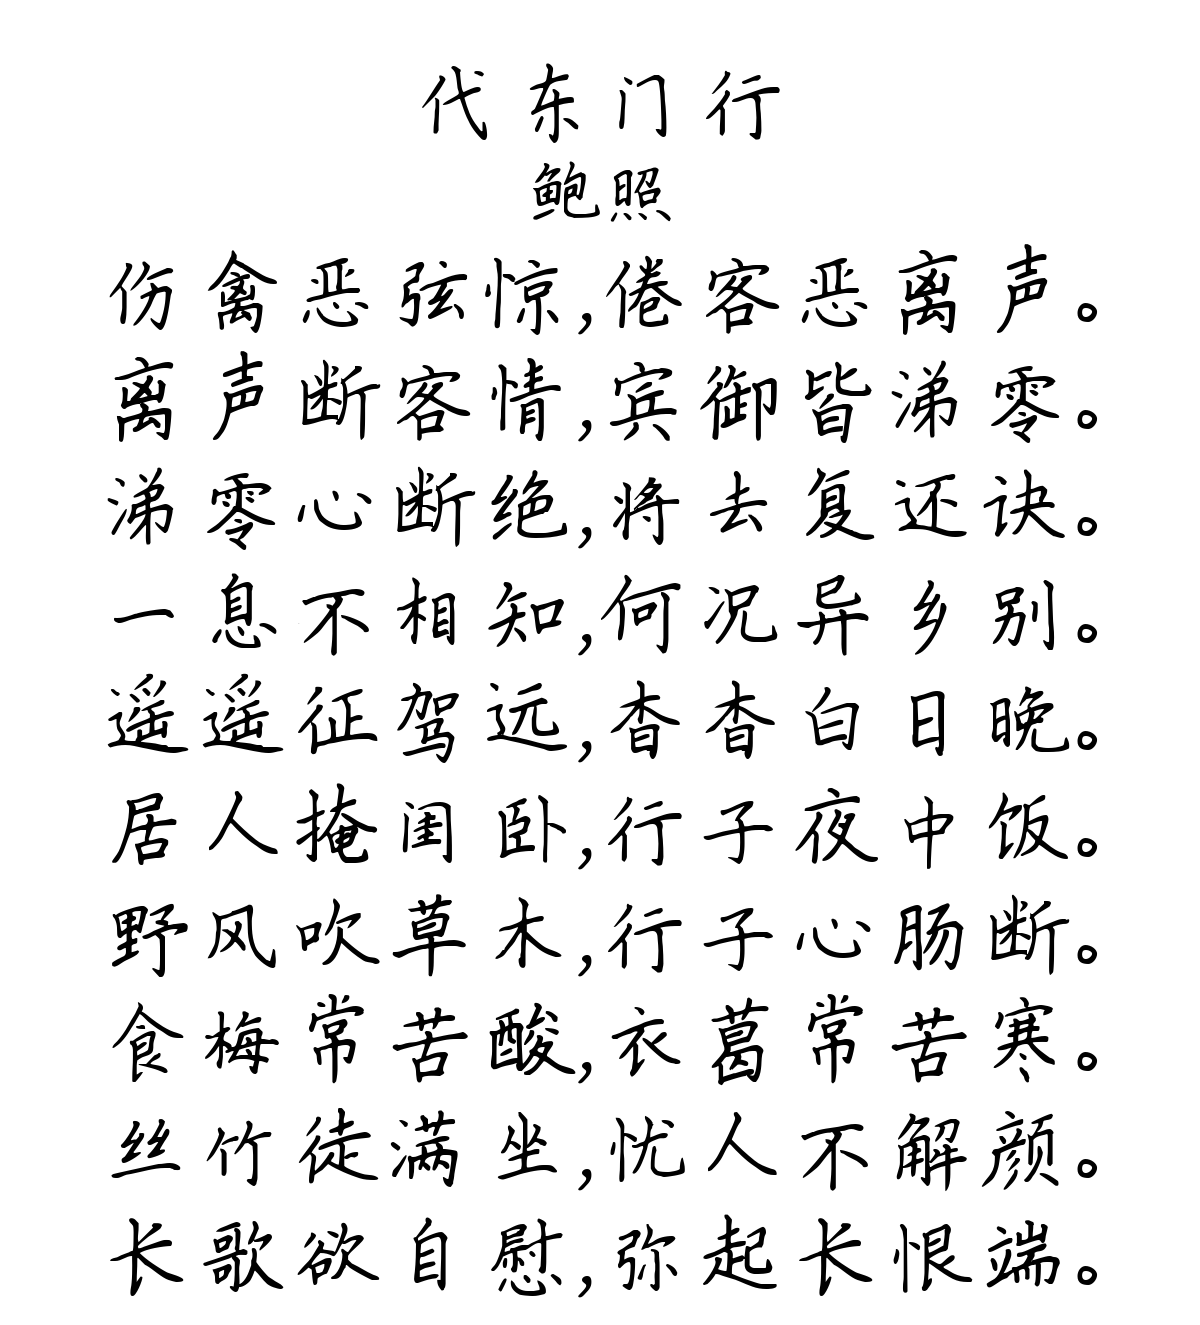 代东门行
鲍照
伤禽恶弦惊,倦客恶离声。
离声断客情,宾御皆涕零。
涕零心断绝,将去复还诀。
一息不相知,何况异乡别。
遥遥征驾远,杳杳白日晚。
居人掩闺卧,行子夜中饭。
野风吹草木,行子心肠断。
食梅常苦酸,衣葛常苦寒。
丝竹徒满坐,忧人不解颜。
长歌欲自慰,弥起长恨端。